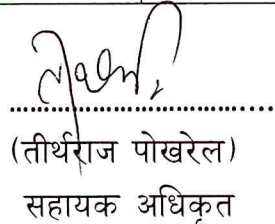 (तीर्थराज पोखरेल)
सहायक अधिकृत